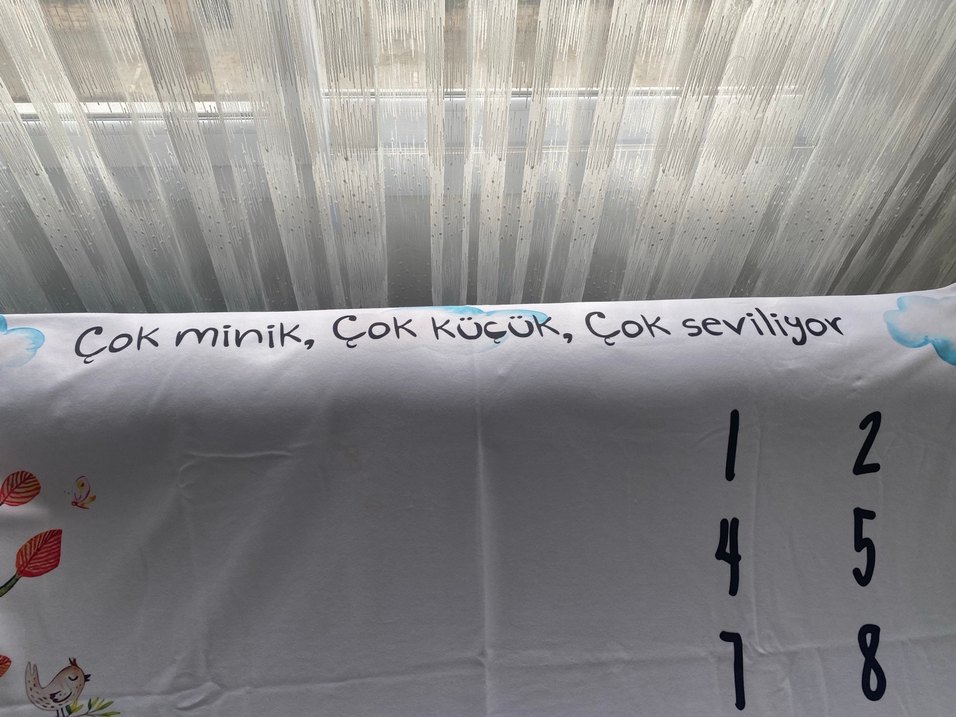 Çok minik, Çok küçük, Çok seviliyor
1 2
4 5
7 8